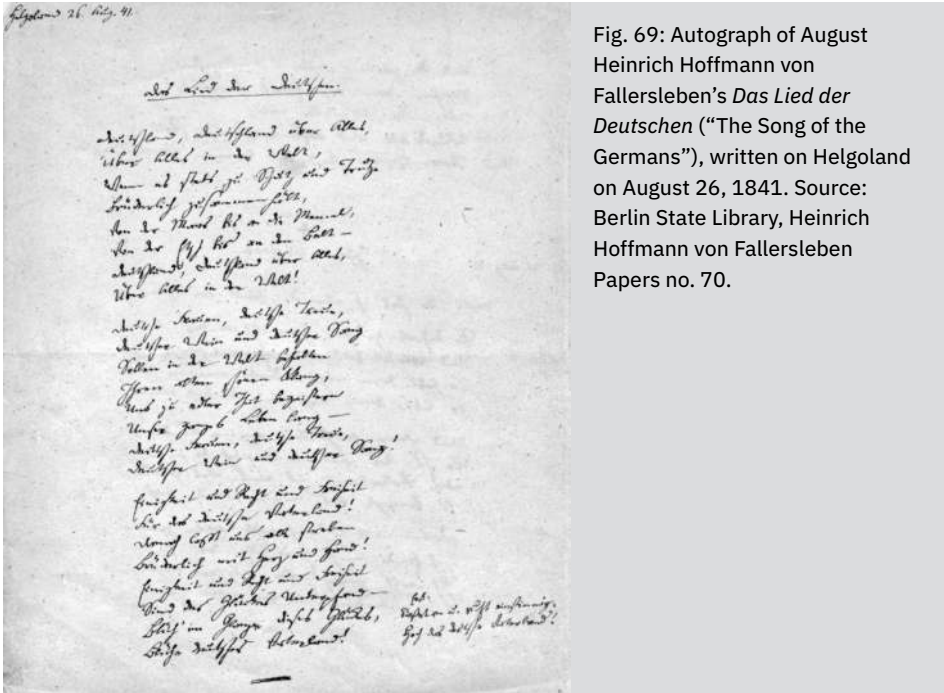 Helgoland 26. Aug. 41.
Das Lied der Deutschen.
Deutschland, Deutschland über Alles,
Über Alles in der Welt,
Wenn es stets zu Schutz und Trutze
Brüderlich zusammenhält,
Von der Maas bis an die Memel,
Von der Etsch bis an den Belt –
Deutschland, Deutschland über Alles,
Über Alles in der Welt!
Deutsche Frauen, deutsche Treue,
Deutscher Wein und deutscher Sang
Sollen in der Welt behalten
Ihren alten schönen Klang,
Uns zu edler That begeistern
Unser ganzes Leben lang –
Deutsche Frauen, deutsche Treue,
Deutscher Wein und deutscher Sang!
Einigkeit und Recht und Freiheit
Für das deutsche Vaterland!
Danach laßt uns alle streben
Brüderlich mit Herz und Hand!
Einigkeit und Recht und Freiheit
Sind des Glückes Unterpfand –
Blüh' im Glanze dieses Glückes,
Blühe deutsches Vaterland!
Stoßet an u. ruft einstimmig:
Hoch das deutsche Vaterland!
Fig. 69: Autograph of August
Heinrich Hoffmann von
Fallersleben’s Das Lied der
Deutschen (“The Song of the
Germans”), written on Helgoland
on August 26, 1841. Source:
Berlin State Library, Heinrich
Hoffmann von Fallersleben
Papers no. 70.